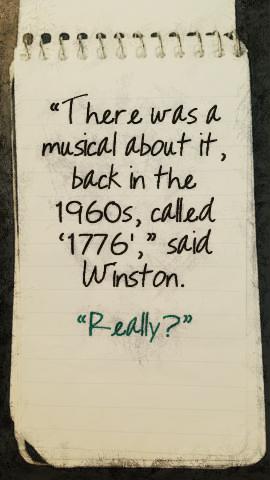 “There was a
musical about it,
back in the
1960s, called
‘1776’,” said
Winston.
“Really?”